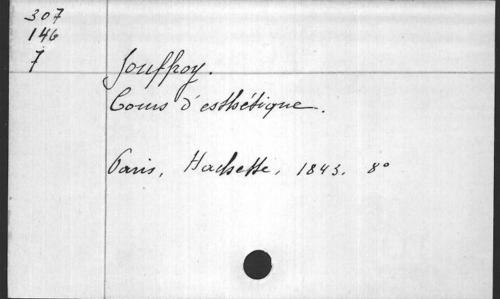 307
146
7
Jouffroy.
Cours d'esthétique.
Paris, Hachette, 1843. 8°